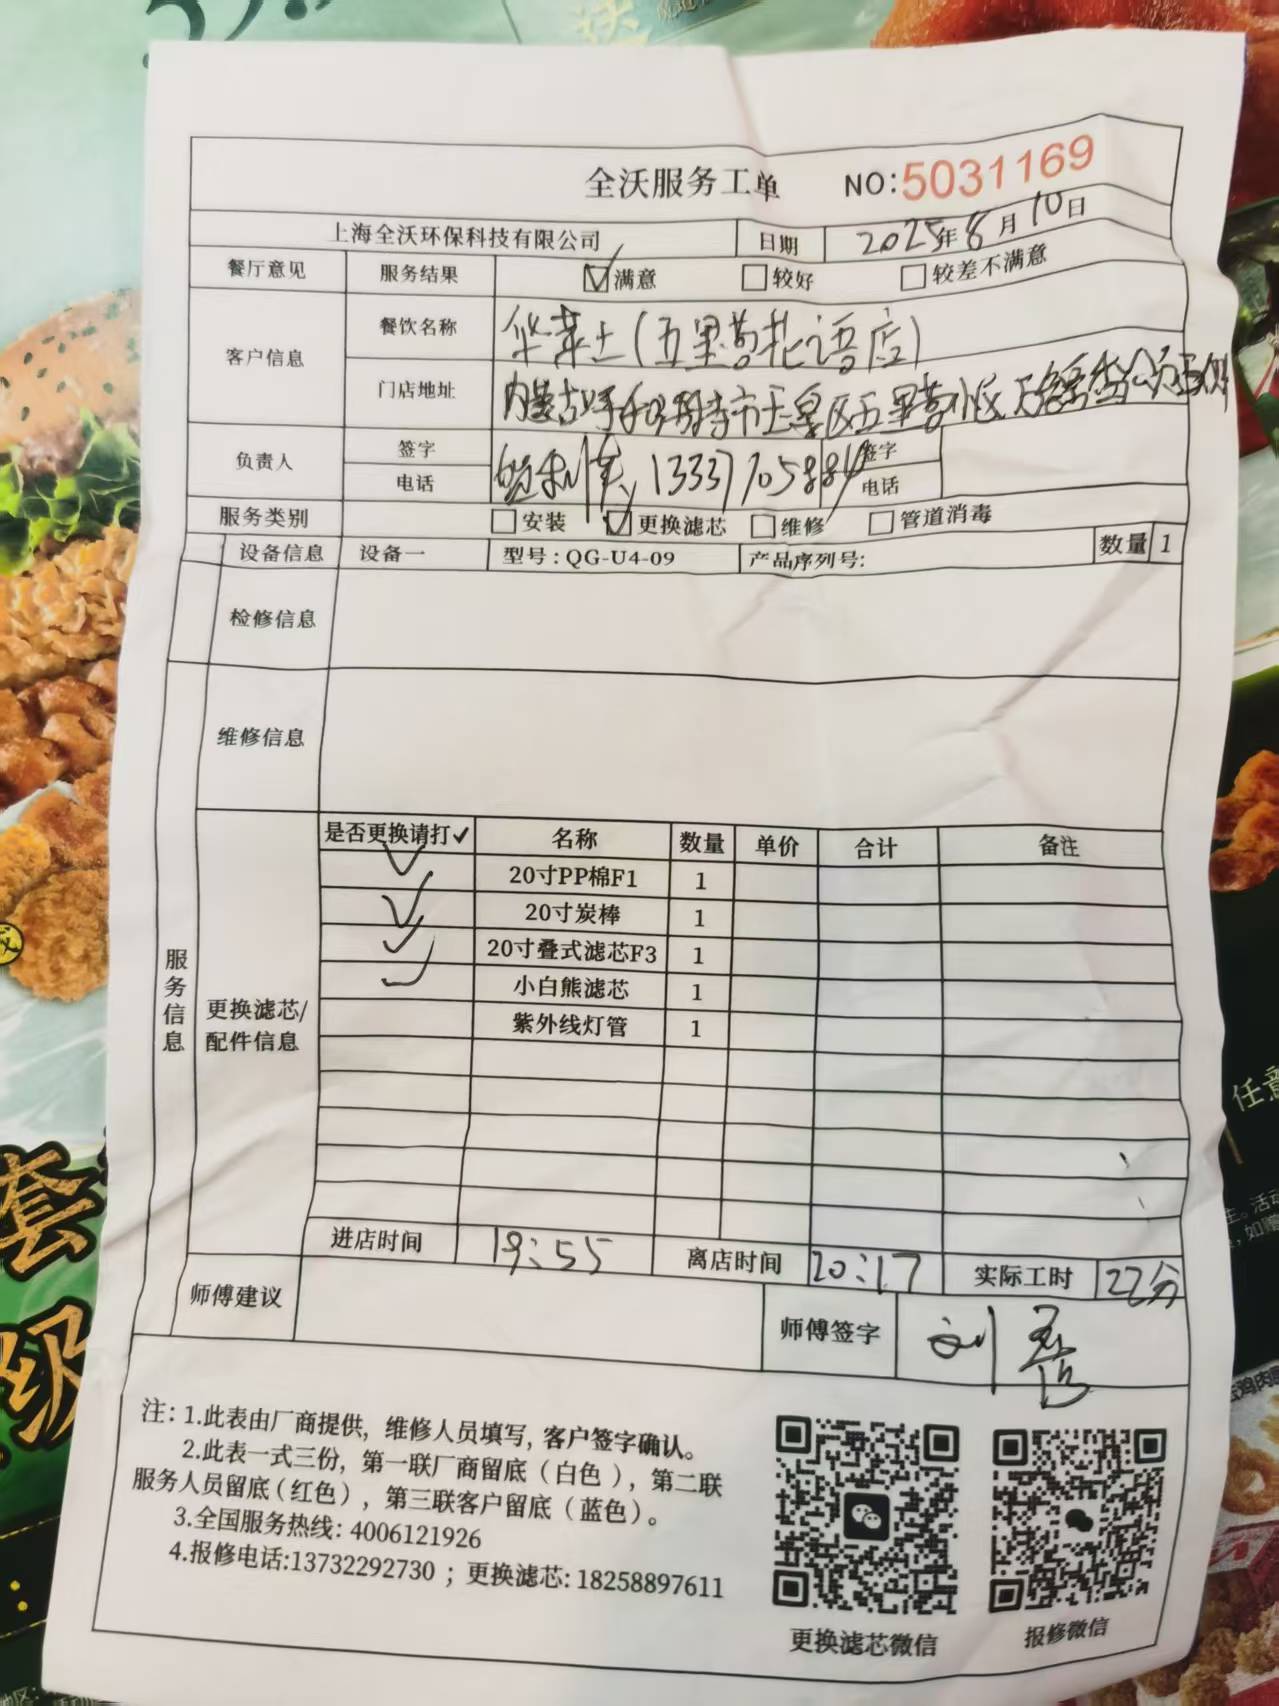 全沃服务工单 NO:5031169
上海全沃环保科技有限公司 日期 2025年8月10日
餐厅意见 服务结果 ☑满意 □较好 □较差不满意
客户信息 餐饮名称 华莱士(五里营 语店)
门店地址 内蒙古呼和浩特市玉泉区五里营小区
负责人 签字 签字
电话 电话
服务类别 □安装 ☑更换滤芯 □维修 □管道消毒
设备信息 设备一 型号:QG-U4-09 产品序列号: 数量 1
检修信息
维修信息
服务信息
更换滤芯/
配件信息
是否更换请打✓ 名称 数量 单价 合计 备注
✓ 20寸PP棉F1 1
✓ 20寸炭棒 1
✓ 20寸叠式滤芯F3 1
✓ 小白熊滤芯 1
紫外线灯管 1
进店时间 19:55 离店时间 20:17 实际工时 22分
师傅建议 师傅签字 刘
注:1.此表由厂商提供,维修人员填写,客户签字确认。
2.此表一式三份,第一联厂商留底(白色),第二联
服务人员留底(红色),第三联客户留底(蓝色)。
3.全国服务热线:4006121926
4.报修电话:13732292730;更换滤芯:18258897611
更换滤芯微信 报修微信
套
级
任意